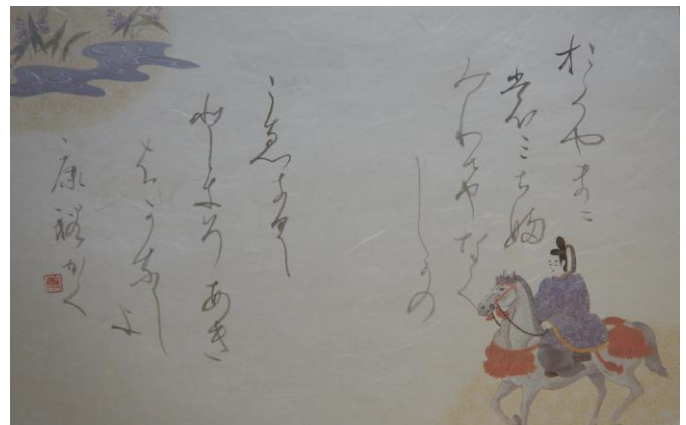 おくやまに
もみち婦
みわけなく
しかの
こ恵きく
ときそあき
はかなし
き
康
かく